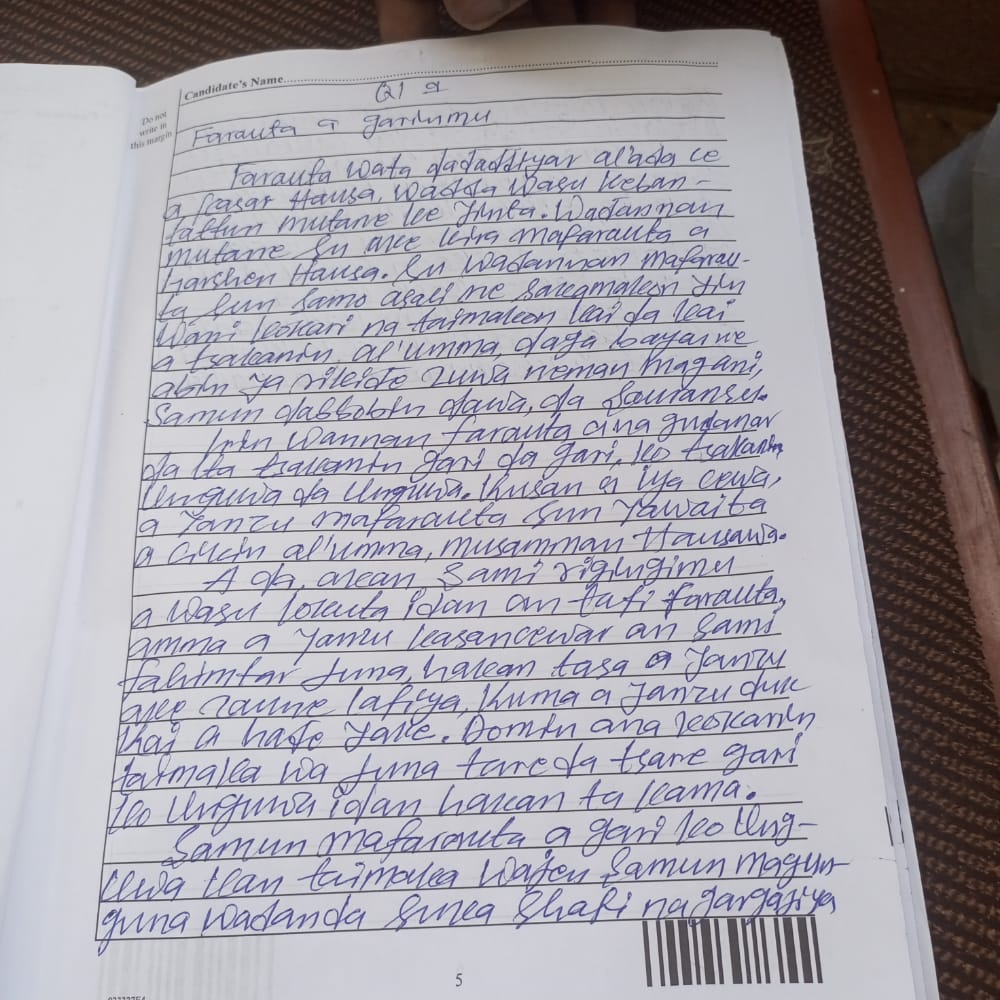 Candidate's Name
Do not
write in
this margin
Q1 a
Farauta a garinmu
Farauta wata dadaddiyar al'ada ce
a kasar Hausa, wadda wasu keɓan-
tattun mutane ke yinta. Wadannan
mutane su ake kira mafarauta a
harshen Hausa. Su wadannan mafarau-
ta sun samo asali ne sakamakon yin
wani kokari na taimakon kai da kai
a tsakanin al'umma, daga baya ne
abin ya rikide zuwa neman magani,
samun dabbobin dawa, da sauransu.
Irin wannan farauta ana gudanar
da ita tsakanin gari da gari, ko tsakanin
unguwa da unguwa. Kusan a iya cewa,
a yanzu mafarauta sun yawaita
a cikin al'umma, musamman Hausawa.
A da, akan sami rigingimu
a wasu lokuta idan an tafi farauta,
amma a yanzu kasancewar an sami
fahimtar juna, hakan tasa a yanzu
ake zaune lafiya, kuma a yanzu duk
kai a haɗe yake. Domin ana kokarin
taimaka wa juna tare da tsare gari
ko unguwa idan hakan ta kama.
Samun mafarauta a gari ko ung-
uwa kan taimaka wajen samun magun-
guna wadanda suka shafi na gargajiya
5